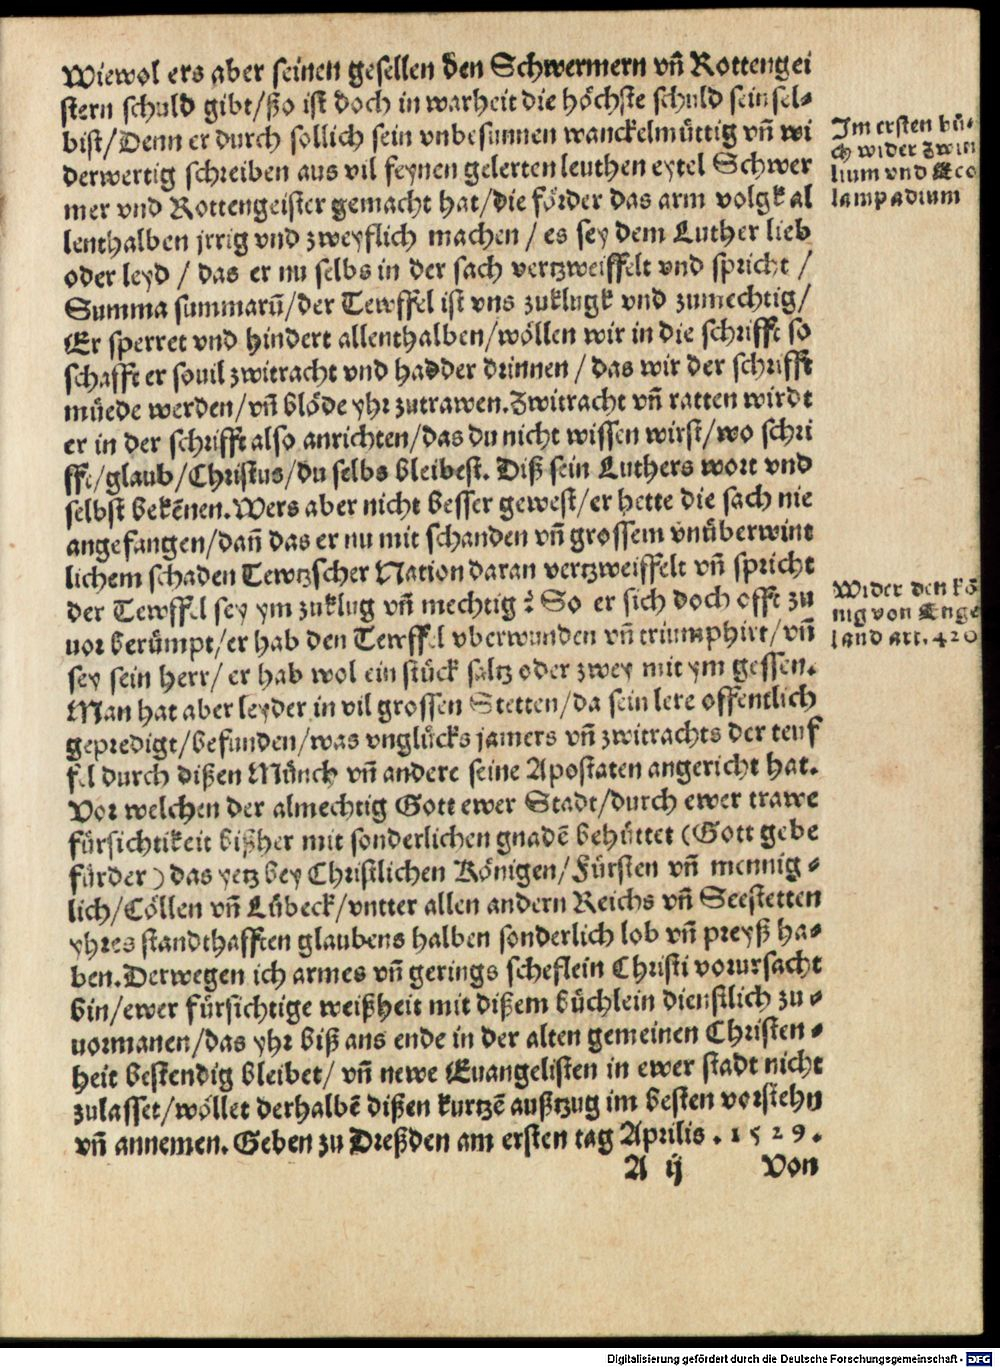 Wiewol ers aber seinen gesellen den Schwermern vn̄ Rottengei
stern schuld gibt/ßo ist doch in warheit die höchste schuld sein sel-
bist/Denn er durch sollich sein vnbesunnen wanckelmüttig vn̄ wi
derwertig schreiben aus vil feynen gelerten leuthen eytel Schwer
mer vnd Rottengeister gemacht hat/die förder das arm volgk al
lenthalben jrrig vnd zweyflich machen / es sey dem Luther lieb
oder leyd / das er nu selbs in der sach vertzweiffelt vnd spricht /
Summa summarū/der Tewffel ist vns zuklugk vnd zumechtig/
Er sperret vnd hindert allenthalben/wöllen wir in die schrifft so
schafft er souil zwitracht vnd hadder drinnen / das wir der schrifft
müede werden/vn̄ blöde yhr zutrawen. Zwitracht vn̄ ratten wirdt
er in der schrifft also anrichten/das du nicht wissen wirst/wo schri
fft/glaub/Christus/du selbs bleibest. Diß sein Luthers wort vnd
selbst bekēnen. Wers aber nicht besser gewest/er hette die sach nie
angefangen/dan̄ das er nu mit schanden vn̄ grossem vnüberwint
lichem schaden Tewtzscher Nation daran vertzweiffelt vn̄ spricht
der Tewffel sey ym zuklug vn̄ mechtig? So er sich doch offt zu
uor berümpt/er hab den Tewffel vberwunden vn̄ triumphirt/vn̄
sey sein herr/ er hab wol ein stück saltz oder zwey mit ym gessen.
Man hat aber leyder in vil grossen Stetten/da sein lere offentlich
gepredigt/befunden/was vnglücks jamers vn̄ zwitrachts der teuf
fel durch dißen Münch vn̄ andere seine Apostaten angericht hat.
Vor welchen der almechtig Gott ewer Stadt/durch ewer trawe
fürsichtikeit bißher mit sonderlichen gnadē behüttet (Gott gebe
fürder) das yetz bey Christlichen Königen/Fürsten vn̄ mennig-
lich/Cöllen vn̄ Lübeck/vntter allen andern Reichs vn̄ Seestetten
yhres standthafften glaubens halben sonderlich lob vn̄ preyß ha-
ben. Derwegen ich armes vn̄ gerings scheflein Christi vorursacht
bin/ewer fürsichtige weißheit mit dißem büchlein dienstlich zu-
uormanen/das yhr biß ans ende in der alten gemeinen Christen-
heit bestendig bleibet/ vn̄ newe Euangelisten in ewer stadt nicht
zulasset/wöllet derhalbē dißen kurtzē außtzug im besten vorstehn
vn̄ annemen. Geben zu Dreßden am ersten tag Aprilis. 1529.
A ij Von
Im ersten bü-
ch wider Zwin
lium vnd Eco
lampadium
Wider den kö
nig von Enge
land art. 420
Digitalisierung gefördert durch die Deutsche Forschungsgemeinschaft - DFG